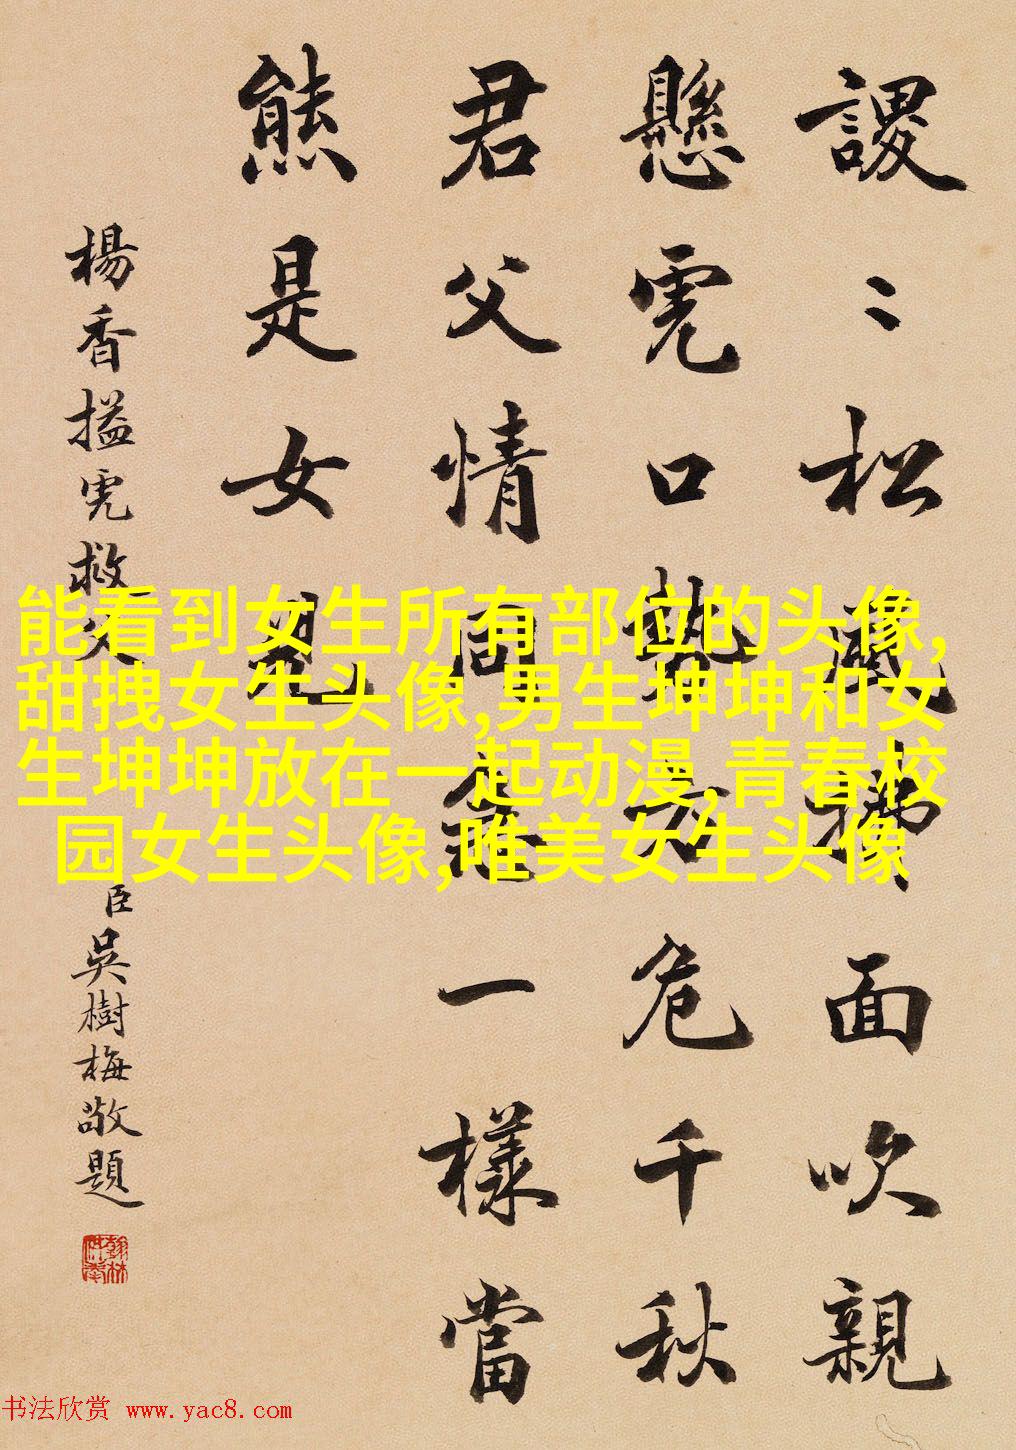 謖〻松風拂面吹親
懸虎口勢方危千秋
君父情同急一樣當
熊是女兒
楊香搤虎救父
臣吳樹梅敬題
翰林供奉
能看到女生所有部位的头像,
甜拽女生头像,男生坤坤和女
生坤坤放在一起动漫,青春校
园女生头像,唯美女生头像
书法欣赏 www.yac8.com